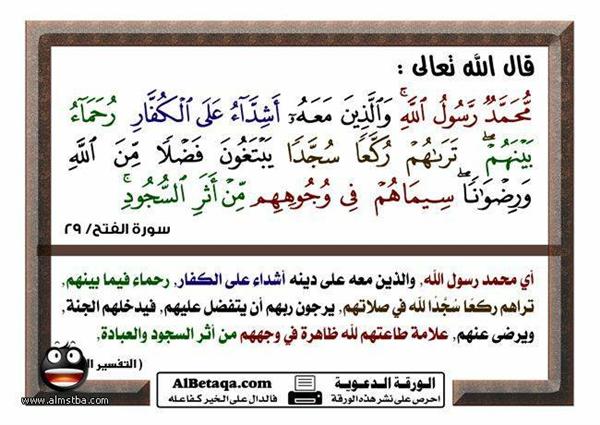 قال الله تعالى :
مُّحَمَّدٌ رَّسُولُ اللَّهِ ۚ وَالَّذِينَ مَعَهُۥٓ أَشِدَّآءُ عَلَى الْكُفَّارِ رُحَمَآءُ
بَيْنَهُمْ ۖ تَرَىٰهُمْ رُكَّعًا سُجَّدًا يَبْتَغُونَ فَضْلًا مِّنَ اللَّهِ
وَرِضْوَٰنًا ۖ سِيمَاهُمْ فِى وُجُوهِهِم مِّنْ أَثَرِ السُّجُودِ ۚ
سورة الفتح/ ٢٩
أي محمد رسول الله, والذين معه على دينه أشداء على الكفار, رحماء فيما بينهم,
تراهم ركعًا سُجَّدًا لله في صلاتهم, يرجون ربهم أن يتفضل عليهم, فيدخلهم الجنة,
ويرضى عنهم, علامة طاعتهم لله ظاهرة في وجههم من أثر السجود والعبادة,
( التفسير
الورقة الدعوية
احرص على نشر هذه الورقة
AlBetaqa.com
فالدال على الخير كفاعله
www.almstba.com